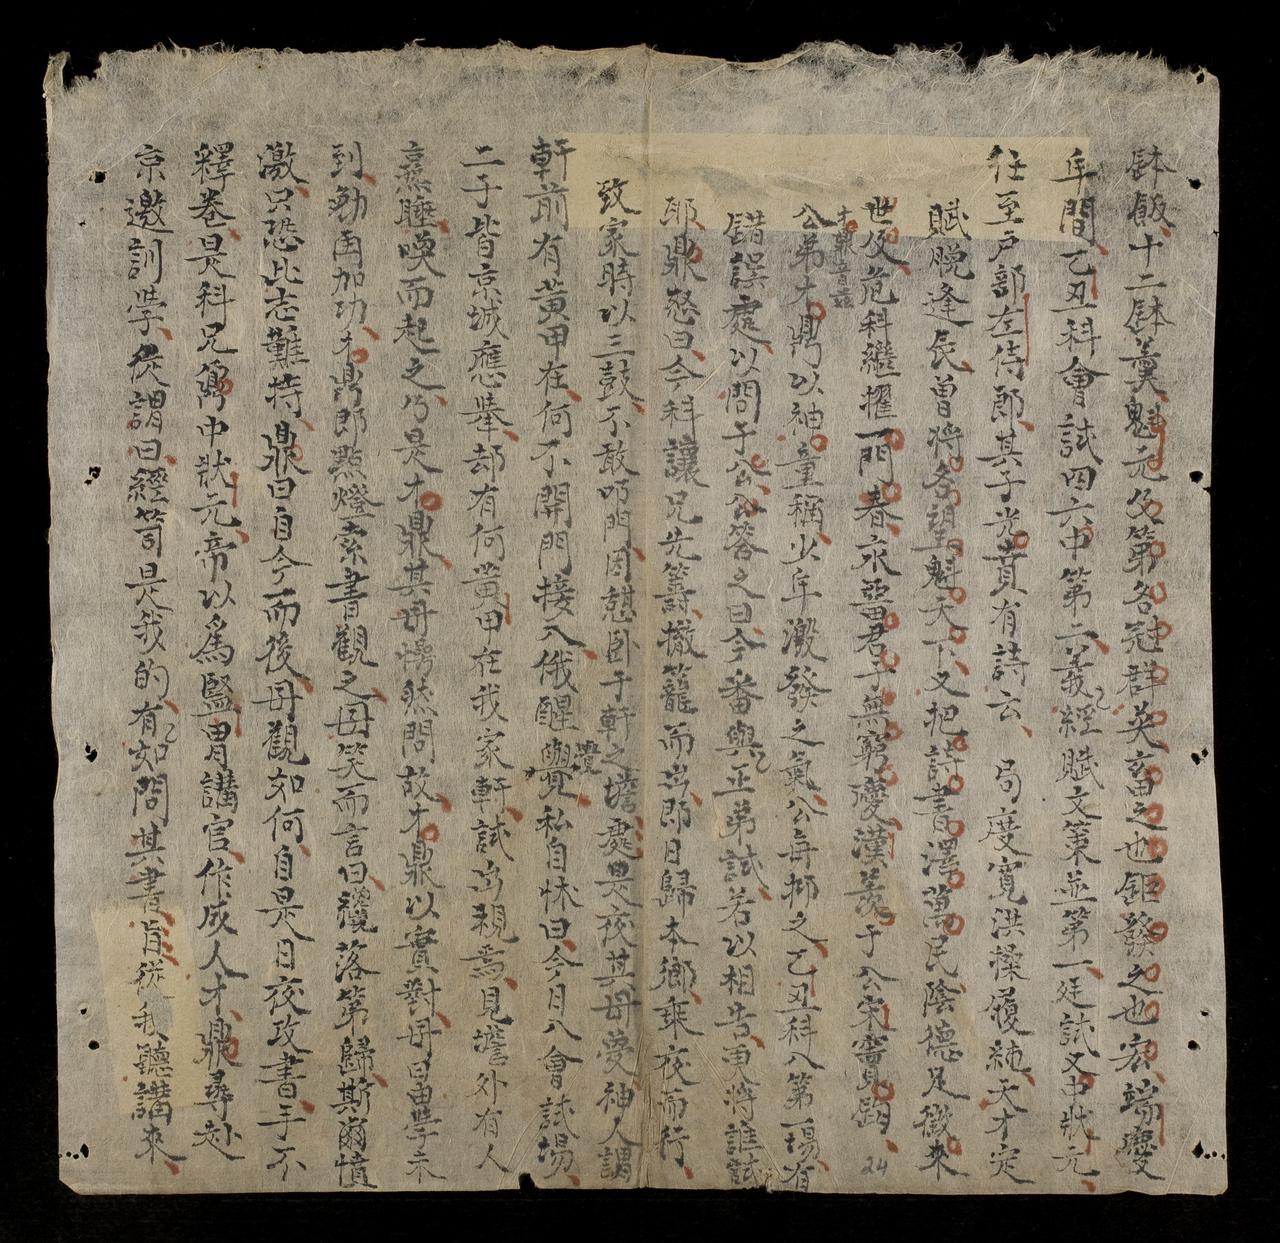 鉢飯十二鉢羹魁元及第各冠群英畜之也鉅發之也宏端慶
年間乙丑科會試四六中第二義經賦文策並第一廷試又中狀元
任至戶部左侍郎其子光賁有詩云 局度寬洪操履純天才定
賦脫逢辰曾將名詔魁天下又把詩書澤萬民陰德足徵來
世及危科繼擢一門春永畱君子無窮慶漢羨于公宋竇鈞
公弟才鼎以神童稱少年激發之氣公每抑之乙丑科入第一場有
錯誤處以問于公公答之曰今番與正弟試若以相告更將誰試
耶鼎怒曰今科讓兄先籌撤籠而出即日歸本鄉乘夜而行
致家時以三鼓不敢叩門因憩卧于軒之簷處是夜其母夢神人謂
軒前有黃甲在何不開門接入俄醒覺私自怵曰今日入會試場
二子皆京城應舉却有何黃甲在我家軒試出視焉見簷外有人
熹睡喚而起之乃是才鼎其母愕然問故才鼎以實對母曰畱學未
到勉圖加功才鼎即點燈索書觀之母笑而言曰纔落第歸斯爾憤
激只恐此志難持鼎曰自今而後母觀如何自是日夜攻書手不
釋卷是科兄雋中狀元帝以爲監胄講官作成人才鼎尋赴
京邀訓學從謂曰經笥是我的有如問其書旨從我聽講來
24